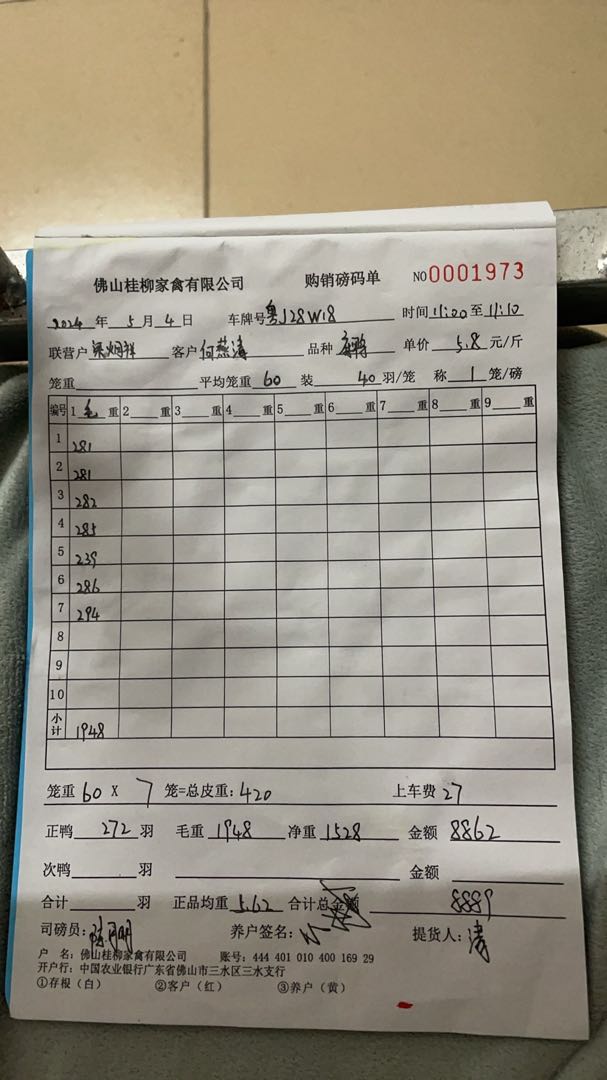 佛山桂柳家禽有限公司 购销磅码单 NO 0001973
2024 年 5 月 4 日 车牌号 粤J28W18 时间 11:00 至 11:10
联营户 梁炳祥 客户 何燕涛 品种 单价 5.8 元/斤
笼重 平均笼重 60 装 40 羽/笼 称 1 笼/磅
编号 1 毛 重 2 重 3 重 4 重 5 重 6 重 7 重 8 重 9 重
1 281
2 281
3 282
4 285
5 239
6 286
7 294
8
9
10
小计 1948
笼重 60 X 7 笼=总皮重: 420 上车费 27
正鸭 272 羽 毛重 1948 净重 1528 金额 8862
次鸭 羽 金额
合计 羽 正品均重 5.62 合计总金额 8889
司磅员: 养户签名: 提货人: 涛
户 名: 佛山桂柳家禽有限公司 账号: 444 401 010 400 169 29
开户行: 中国农业银行广东省佛山市三水区三水支行
①存根（白） ②客户（红） ③养户（黄）